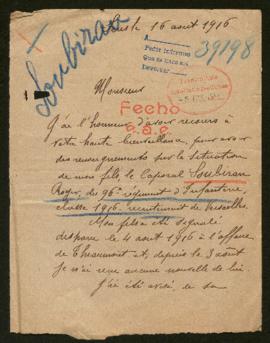 Soubiran
le 16 aout 1916
A
39198
Monsieur
Fecho
e.a.e.
J'ai l'honneur d'avoir recours à
votre haute bienveillance, pour avoir
des renseignements sur la situation
de mon fils, le Caporal Soubiran
Roger, du 96e régiment d'Infanterie
classe 1916 recrutement de Versailles
Mon fils a été signalé
disparu le 4 aout 1916 à l'affaire
de Thiaumont et, depuis le 3 août
je n'ai reçu aucune nouvelle de lui.
J'ai été avisé de sa